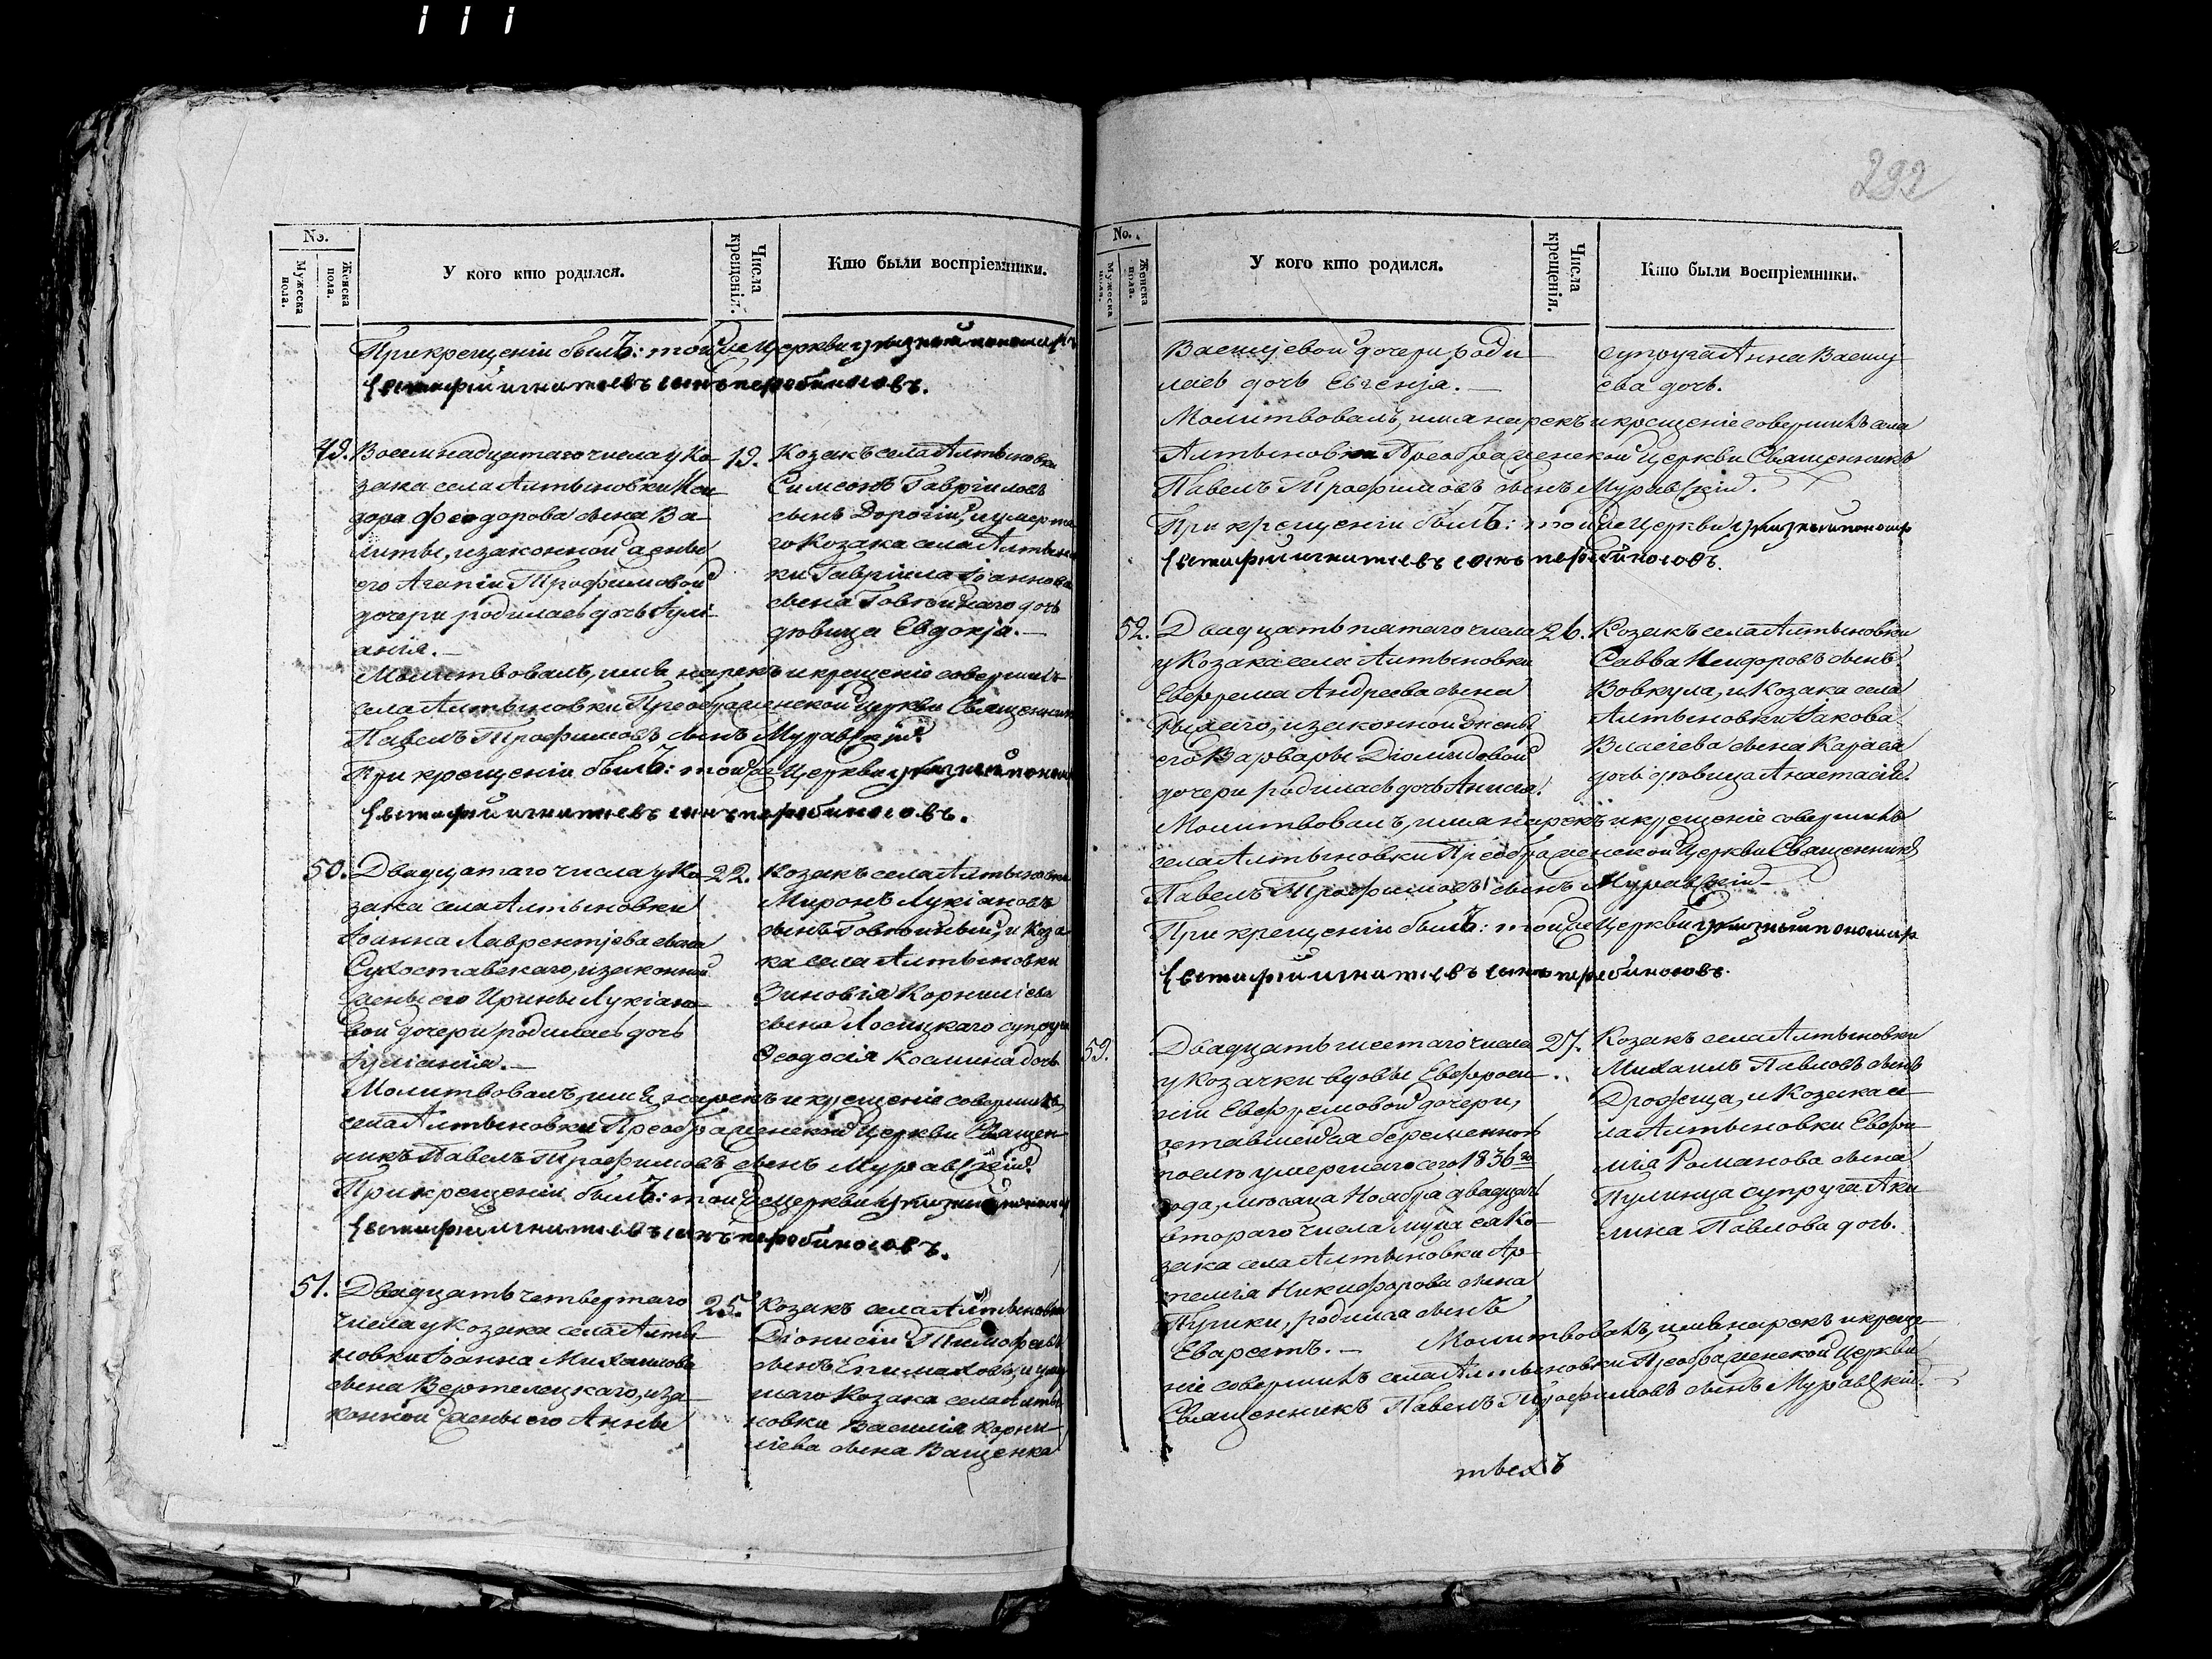 No.
Мужеска пола.
Женска пола.
У кого кто родился.
Числа крещенія.
Кто были воспріемники.
При крещеніи былъ: тойже Церкви указной пономарь
Евстафій Игнатіевъ сынъ Перебиносовъ.
49.
Восемнадцатаго числа у Ко-
зака села Алтыновки Иси-
дора Феодорова сына Ва-
литы, изаконной жены
его Агапіи Трофимовой
дочери родилась дочь Іулі-
анія.—
19.
Козакъ села Алтыновки
Симеонъ Гавріиловъ
сынъ Дорогій, и умерша-
го Козака села Алтынов
ки Гавріила Іоаннова
сына Говтойднаго дочь
дѣвица Евдокія.—
Молитвовалъ, имя нарекъ и крещеніе совершилъ
села Алтыновки Преображенской Церкви Священникъ
Павелъ Трофимовъ сынъ Муравскій.
При крещеніи былъ: тойже Церкви указной понома
Евстафій Игнатіевъ сынъ Перебиносовъ.
50.
Двадцатаго числа у Ко-
зака села Алтыновки
Іоанна Лаврентіева сына
Сухоставскаго, изаконной
жены его Ирины Лукіано-
вой дочери родилась дочь
Іуліанія.—
22.
Козакъ села Алтыновки
Миронъ Лукіановъ
сынъ, и Коза-
ка села Алтыновки
Зиновія Корниліева
сына Лосицкаго супруга
Феодосія Космина дочь
Молитвовалъ, имя нарекъ и крещеніе совершилъ
села Алтыновки Преображенской Церкви Священ-
никъ Павелъ Трофимовъ сынъ Муравскій.
При крещеніи былъ: тойже Церкви указной пономар
Евстафій Игнатіевъ сынъ Перебиносовъ.
51.
Двадцать четвертаго
числа у Козака села Алты-
новки Іоанна Михаилова
сына Вертелецкаго, иза-
конной жены его Анны
25.
Козакъ села Алтыновки
Діонисій Тимофеевъ
сынъ Епимаховъ, и умер
шаго Козака села Алты-
новки Василія Корни-
ліева сына Ващенка
292
No.
Мужеска пола.
Женска пола.
У кого кто родился.
Числа крещенія.
Кто были воспріемники.
Василіевой дочери, роди-
лась дочь Евгенія.—
супруга Анна Василі-
ева дочь.
Молитвовалъ, имя нарекъ и крещеніе совершилъ села
Алтыновки Преображенской Церкви Священникъ
Павелъ Трофимовъ сынъ Муравскій.
При крещеніи былъ: тойже Церкви указный пономарь
Евстафій Игнатіевъ сынъ Перебиносовъ.
52.
Двадцать пятаго числа
у Козака села Алтыновки
Евфрема Андреева сына
изаконной жены
его Варвары Діомидовой
дочери родилась дочь Анисія.
26.
Козакъ села Алтыновки
Савва Исидоровъ сынъ
Вовкула, и Козака села
Алтыновки Іакова
Власіева сына Карася
дочь дѣвица Анастасія.
Молитвовалъ, имя нарекъ и крещеніе совершилъ
села Алтыновки Преображенской Церкви Священникъ
Павелъ Трофимовъ сынъ Муравскій—
При крещеніи былъ: тойже Церкви указный пономарь
Евстафій Игнатіевъ сынъ Перебиносовъ.
53.
Двадцать шестаго числа
у Козачки вдовы Евфроси-
ніи Евфремовой дочери,
оставшейся беременною
послѣ умершаго сего 1836го
года, мѣсяца Ноября двадцать
втораго числа мужа ея Ко-
зака села Алтыновки Ар-
темія Никифорова сына
Пурики, родился сынъ
Еварестъ.—
27.
Козакъ села Алтыновки
Михаилъ Павловъ сынъ
и Козака се-
ла Алтыновки Евфи-
мія Романова сына
Пулинца супруга Аки-
лина Павлова дочь.
Молитвовалъ, имя нарекъ и креще-
ніе совершилъ села Алтыновки Преображенской Церкви
Священникъ Павелъ Трофимовъ сынъ Муравскій.—